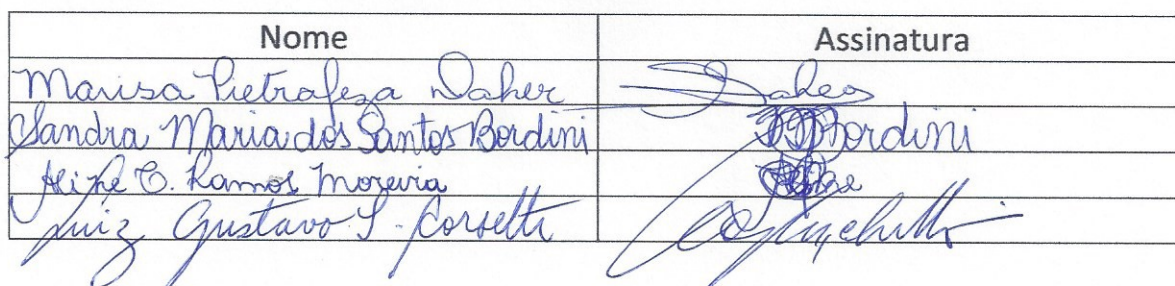 Nome Assinatura
Marisa Pietrafeza Daher Daher
Sandra Maria dos Santos Bordini Bordini
C. Ramos Moreira
Luiz Gustavo S. Corsetti